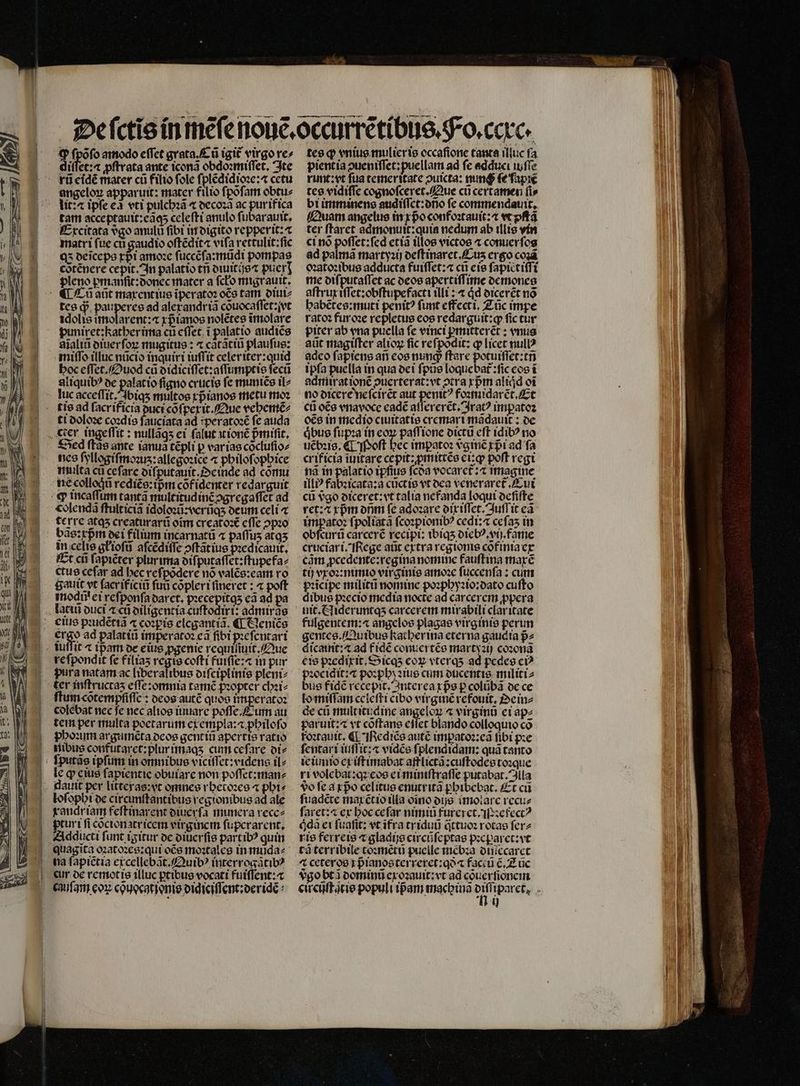 De sctis in mēse nouē. occurrētibus. Fo. cccc.
ꝙ spōso amodo esset grata. Cū igit̄ virgo re⸗
disset: ⁊ ꝓstrata ante iconā obdormisset. Ite
rū eidē mater cū filio sole splēdidiore: ⁊ cetu
angeloꝝ apparuit: mater filio spōsam obtu⸗
lit: ⁊ ipse eā vti pulchrā ⁊ decorā ac purifica
tam acceptauit: eāqꝫ celesti anulo subarauit.
Excitata v̄go anulū sibi in digito repperit: ⁊
matri sue cū gaudio ostēdit ⁊ visa rettulit: sic
qꝫ deiceps xp̄i amore succēsa: mūdi pompas
cōtēnere cepit. In palatio tn̄ diuitijs ⁊ puerꝭ
pleno ꝑmansit: donec mater a sc̄lo migrauit.
¶ Cū aūt maxentius īperator oēs tam diui⸗
tes ꝙ̄ pauperes ad alexandriā cōuocasset: vt
idolis imolarent: ⁊ xp̄ianos nolētes imolare
puniret: Katherina cū esset ī palatio audiēs
aīaliū diuersoꝝ mugitus: ⁊ cātātiū plausus:
misso illuc nūcio inquiri iussit celeriter: quid
hoc esset. Quod cū didicisset: assumptis secū
aliquibꝰ de palatio signo crucis se muniēs il⸗
luc accessit. Ibiqꝫ multos xp̄ianos metu mor
tis ad sacrificia duci cōspexit. Que vehemē⸗
ti dolore cordis sauciata ad īperatorē se auda
cter ingessit: nullāqꝫ ei salutationē p̄misit.
Sed stās ante ianuā tēpli ꝑ varias cōclusio⸗
nes syllogismorum: allegorice ⁊ philosophice
multa cū cesare disputauit. Deinde ad cōmu
ne colloqū rediēs: ip̄m cōfidenter redarguit
ꝙ incassum tantā multitudinē ꝯgregasset ad
colendā stulticiā idolorū: verūqꝫ deum celi ⁊
terre atqꝫ creaturarū oīm creatorē esse ꝓro
bās: xp̄m dei filium incarnatū ⁊ passuꝫ atqꝫ
in celis gl'iosū ascēdisse ꝯstātius predicauit.
Et cū sapiēter plurima disputasset: stupefa⸗
ctus cesar ad hec respōdere nō valēs: eam ro
gauit vt sacrificiū suū cōpleri sineret: ⁊ post
modū ei responsa daret. precepitqꝫ eā ad pa
latiū duci ⁊ cū diligentia custodiri: admirās
eius prudētiā ⁊ corpis elegantiā. ¶ Veniēs
ergo ad palatiū imperator eā sibi presentari
iussit ⁊ ip̄am de eius ꝓgenie requisiuit. Que
respondit se filiaꝫ regis costi fuisse: ⁊ in pur
pura natam ac liberalibus disciplinis pleni⸗
ter instructaꝫ esse: omnia tamē propter chri⸗
stum cōtempsisse: deos autē quos imperator
colebat nec se nec alios iuuare posse. Cum au
tem per multa poetarum exempla: ⁊ philoso
phorum argumēta deos gentiū apertis ratio
nibus confutaret: plurimaqꝫ cum cesare di⸗
sputās ipsum in omnibus vicisset: videns il⸗
le ꝙ eius sapientie obuiare non posset: man⸗
dauit per litteras: vt omnes rhetores ⁊ phi⸗
losophi de circunstantibus regionibus ad ale
xandriam festinarent diuersa munera rece⸗
pturi si cōcionatricem virginem superarent.
Adducti sunt igitur de diuersis partibꝰ quin
quagita oratores: qui oēs mortales in mūda⸗
na sapiētia excellebāt. Quibꝰ interrogātibꝰ
cur de remotis illuc ꝑtibus vocati fuissent: ⁊
causam eoꝝ cōuocationis didicissent: deridē⸗
tes ꝙ vnius mulieris occasione tanta illuc sa
pientia ꝯuenisset: puellam ad se adduci iusse
runt: vt sua temeritate ꝯuicta: nunꝙ̄ se sapiē
tes vidisse cognosceret. Que cū certamen si⸗
bi imminens audisset: dn̄o se commendauit.
Quam angelus in xp̄o confortauit: ⁊ vt ꝯstā
ter staret admonuit: quia nedum ab illis vin
ci nō posset: sed etiā illos victos ⁊ conuersos
ad palmā martyrij destinaret. Cuꝫ ergo corā
oratoribus adducta fuisset: ⁊ cū eis sapiētissi
me disputasset ac deos apertissime demones
astruxisset: obstupefacti illi: ⁊ qd dicerēt nō
habētes: muti penitꝰ sunt effecti. Tūc impe
rator furore repletus eos redarguit: ꝙ sic tur
piter ab vna puella se vinci ꝑmitterēt: vnus
aūt magister alioꝝ sic respōdit: ꝙ licet nullꝰ
adeo sapiens añ eos nunꝙ̄ stare potuisset: tn̄
ipsa puella in qua dei spūs loquebat̄: sic eos ī
admirationē ꝯuerterat: vt ꝯtra xp̄m aliqd oī
no dicere nescirēt aut penitꝰ formidarēt. Et
cū oēs vnavoce eadē assererēt. Iratꝰ impator
oēs in medio ciuitatis cremari mādauit: de
qbus supra in eoꝝ passione dictū est idibꝰ no
uēbris. ¶ Post hec impator v̄ginē xp̄i ad sa
crificia iuitare cepit: ꝓmittēs ei: ꝙ post regi
nā in palatio ipsius scda vocaret̄: ⁊ imagine
illiꝰ fabricata: a cūctis vt dea veneraret̄. Cui
cū v̄go diceret: vt talia nefanda loqui desiste
ret: ⁊ xp̄m dn̄m se adorare dixisset. Iussit eā
impator spoliatā scorpionibꝰ cedi: ⁊ cesaꝫ in
obscurū carcerē recipi: ibiqꝫ diebꝰ. vij. fame
cruciari. ¶ Rege aūt extra regionis cōfinia ex
cām ꝓcedente: regina nomine faustina maxē
tij vxor: nimio virginis amore succensa: cum
pricipe militū nomine porphyrio: dato custo
dibus precio media nocte ad carcerem ꝓpera
uit. Videruntqꝫ carcerem mirabili claritate
fulgentem: ⁊ angelos plagas virginis perun
gentes. Quibus katherina eterna gaudia p̄⸗
dicauit: ⁊ ad fidē conuertēs martyrij coronā
eis predixit. Sicqꝫ eoꝝ vterqꝫ ad pedes eiꝰ
procidit: ⁊ porphyrius cum ducentis militi⸗
bus fidē recepit. Interea xp̄s ꝑ colūbā de ce
lo missam celesti cibo virginē refouit. Dein⸗
de cū multitudine angeloꝝ ⁊ virginū ei ap⸗
paruit: ⁊ vt cōstans esset blando colloquio cō
fortauit. ¶ Rediēs autē impator: eā sibi pre
sentari iussit: ⁊ vidēs splendidam: quā tanto
ieiunio existimabat afflictā: custodes torque
ri volebat: qr eos ei ministrasse putabat. Illa
v̄o se a xp̄o celitus enutritā ꝑhibebat. Et cū
suadēte maxētio illa oīno dijs imolare recu⸗
saret: ⁊ ex hoc cesar nimiū fureret. Prefectꝰ
qdā ei suasit: vt ifra triduū qttuor rotas fer⸗
ris ferreis ⁊ gladijs circūseptas preparet: vt
tā terribile tormētū puelle mēbra dissecaret
⁊ ceteros xp̄ianos terreret: qd ⁊ factū ē. Tūc
v̄go btā dominū exorauit: vt ad cōuersionem
circūstātis populi ip̄am machinā dissiparet.
N ij